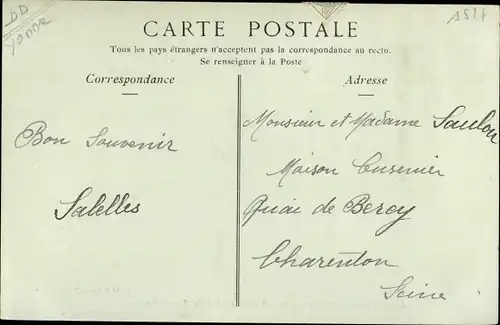 DD
Yonne
CARTE POSTALE
Tous les pays étrangers n'acceptent pas la correspondance au recto.
Se renseigner à la Poste
Correspondance
Bon Souvenir
Salelles
Adresse
Monsieur et Madame Saulou
Maison Cusenier
Quai de Bercy
Charenton
Seine